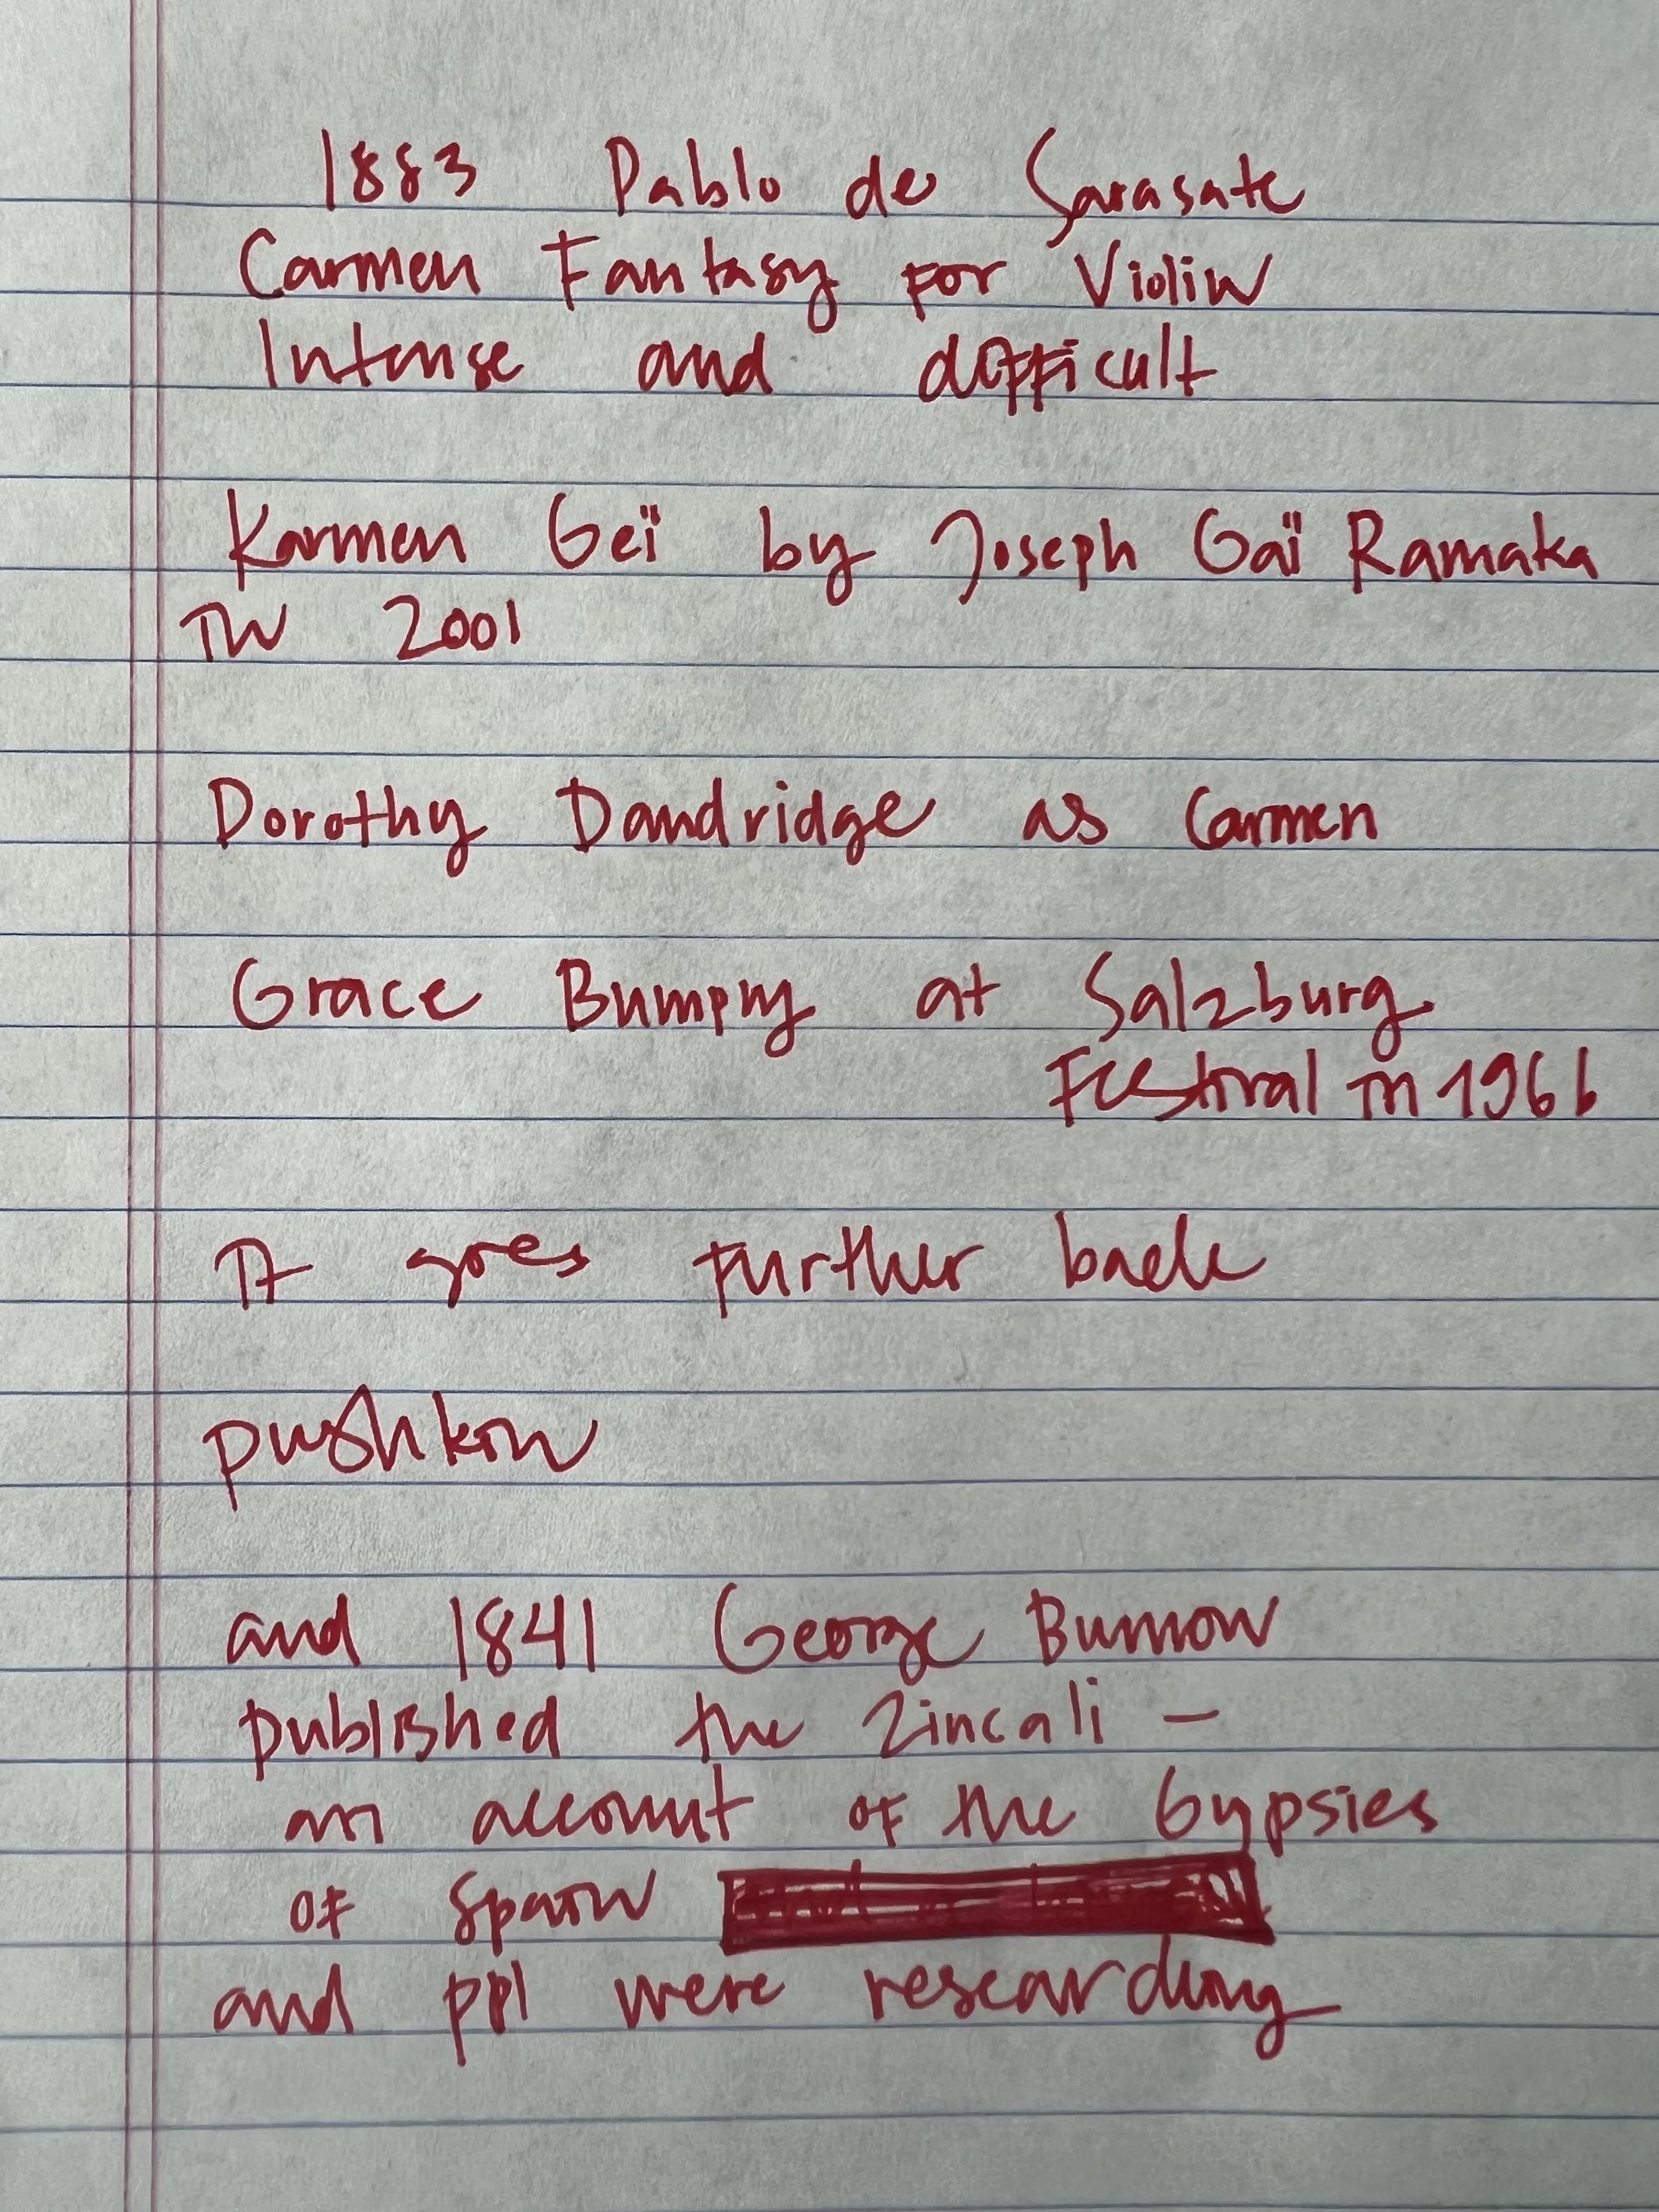 1883 Pablo de Sarasate
Carmen Fantasy for Violin
Intense and difficult
Karmen Geï by Joseph Gaï Ramaka
in 2001
Dorothy Dandridge as Carmen
Grace Bumpry at Salzburg
Festival in 1966
It goes further back
pushkin
and 1841 George Burrow
published the Zincali -
an account of the Gypsies
of Spain
and ppl were researching